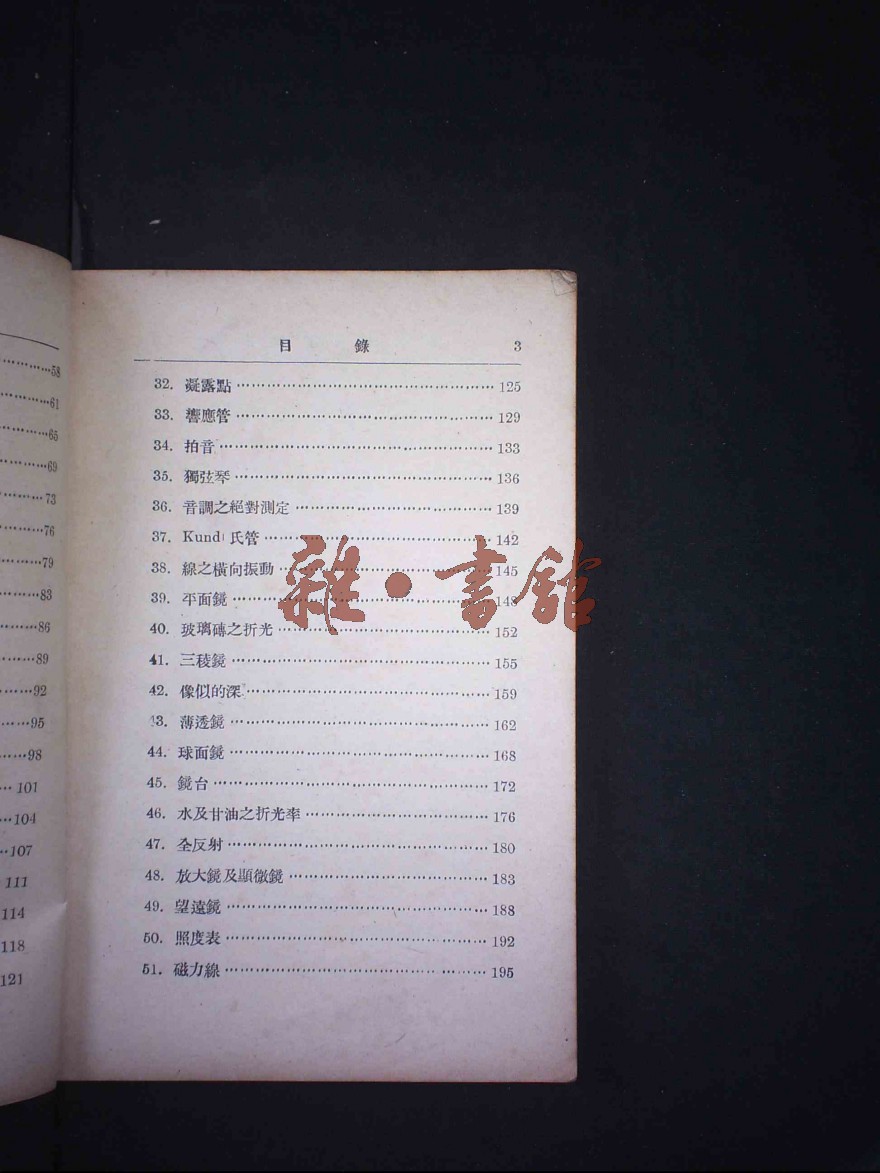 58
61
65
69
73
76
79
83
86
89
92
95
98
101
104
107
111
114
118
121
目 錄 3
32. 凝露點 125
33. 響應管 129
34. 拍音 133
35. 獨弦琴 136
36. 音調之絕對測定 139
37. Kundt 氏管 142
38. 線之橫向振動 145
39. 平面鏡 148
40. 玻璃磚之折光 152
41. 三稜鏡 155
42. 像似的深 159
43. 薄透鏡 162
44. 球面鏡 168
45. 鏡台 172
46. 水及甘油之折光率 176
47. 全反射 180
48. 放大鏡及顯微鏡 183
49. 望遠鏡 188
50. 照度表 192
51. 磁力線 195
雜·書館